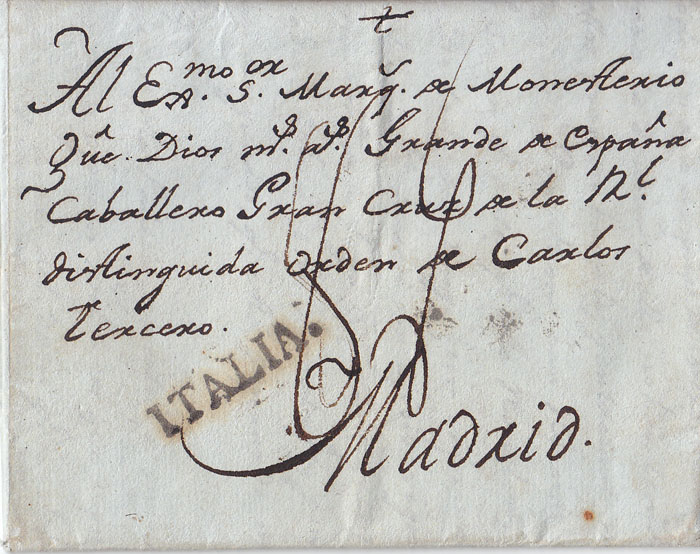 Al Ex.mo S.or Marq.s de Monesterio
Qûe Dios m.s a.s Grande de España
Caballero Gran Cruz de la Rl.
distinguida orden de Carlos
Tercero.
ITALIA.
Madrid.